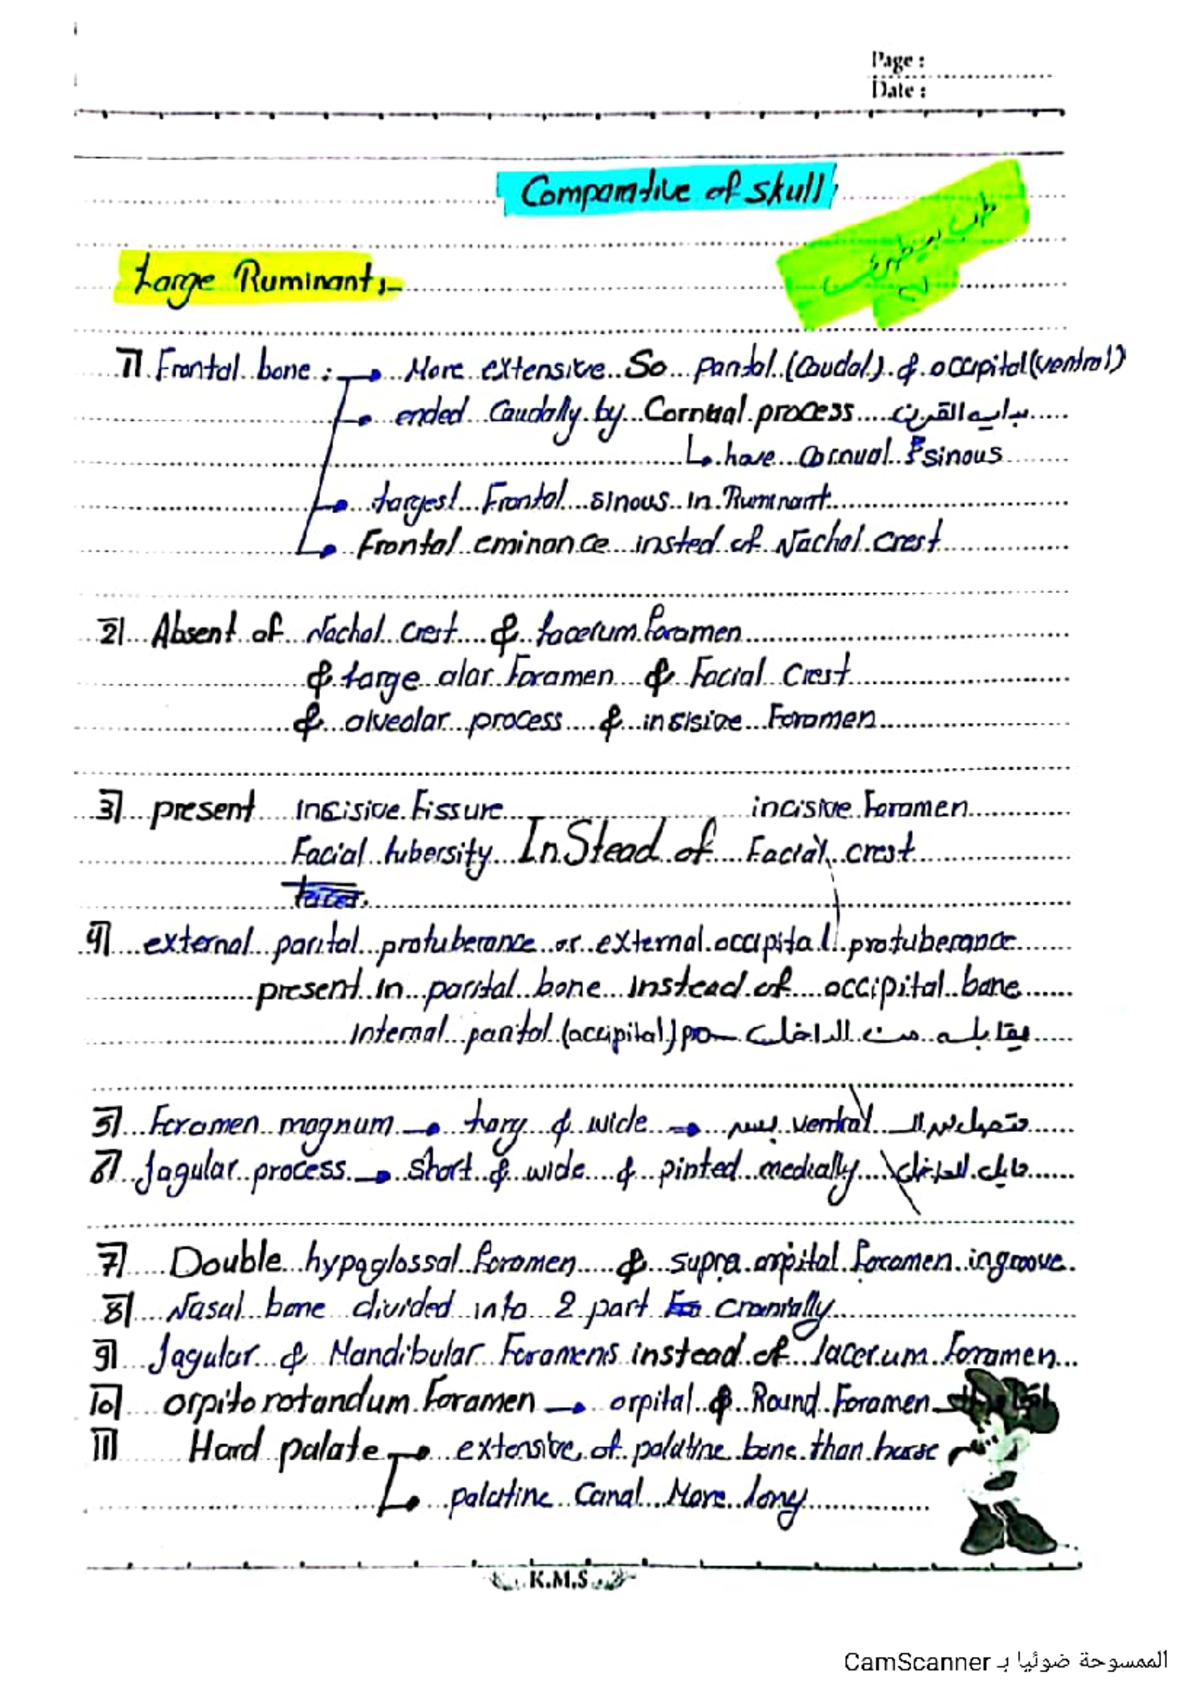 Page :
Date :
Comparative of skull
طب بيطري
Large Ruminant :-
1) Frontal bone : → More extensive So parital (Caudal) & occipital (ventral)
→ ended Caudally by Cornual process بدايه القرن
↳ have Cornual sinous
→ largest Frontal sinous in Ruminant
→ Frontal eminance insted of Nachal crest
2) Absent of Nachal Crest & lacerum foramen
& large alar Foramen & Facial Crest
& alveolar process & insisive Foramen
3) present Incisive Fissure incisive Foramen
Facial tubersity InStead of Facial crest
4) external parital protuberance or external occipital protuberance
present in parital bone instead of occipital bone
internal parital (occipital) pro يقابله من الداخل
5) Foramen magnum → larg & wide → ventral
6) Jagular process → short & wide & pinted medially مايل للداخل
7) Double hypoglossal foramen & supra orpital foramen in groove.
8) Nasal bone divided into 2 part cranially
9) Jagular & Mandibular Foramens instead of lacerum foramen
10) orpito rotandum Foramen → orpital & Round Foramen
11) Hard palate → extensive of palatine bone than horse
↳ palatine Canal More long
K.M.S
الممسوحة ضوئيا بـ CamScanner